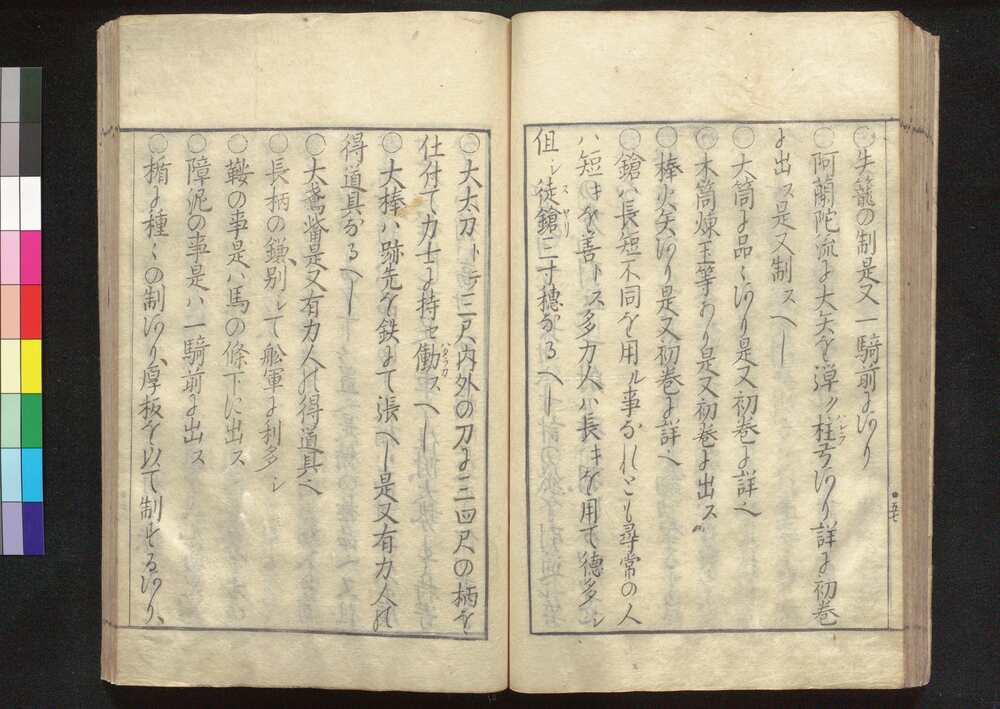 〇失籠の制是又一騎前にあり
〇阿蘭陀流に大矢を弾ク柱弓あり詳に初巻
に出ス是又制スヘし
〇大筒に品々あり是又初巻に詳へ
〇木筒煉玉等あり是又初巻に出ス
〇棒火矢あり是又初巻に詳へ
〇鎗ハ長短不同を用ル事なれとも尋常の人
ハ短キを善トス多力人ハ長キを用て徳多シ
但シ徒鎗三寸穂なるへし
〇大太刀トテ三尺内外の刀に三四尺の柄を
仕付て力士に持セ働スへし
〇大棒ハ跡先を鉄にて張へし是又有力人の
得道具なるへし
〇大鳶觜是又有力人の得道具へ
〇長柄の鎌別して舩軍に利多シ
〇鞍の事是ハ馬の條下に出ス
〇障泥の事是ハ一騎前に出ス
〇楯に種々の制あり厚板を以て制するあり
五七